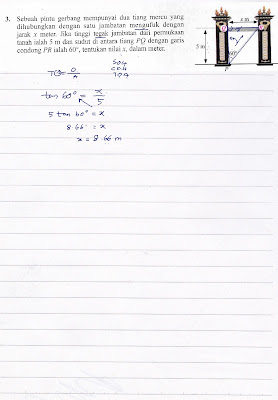 3. Sebuah pintu gerbang mempunyai dua tiang mercu yang
dihubungkan dengan satu jambatan mengufuk dengan
jarak x meter. Jika tinggi tegak jambatan dari permukaan
tanah ialah 5 m dan sudut di antara tiang PQ dengan garis
condong PR ialah 60°, tentukan nilai x, dalam meter.
x m
5 m
SOH
CAH
TOA
T = O
A
tan 60° = x
5
5 tan 60° = x
8.66 = x
x = 8.66 m